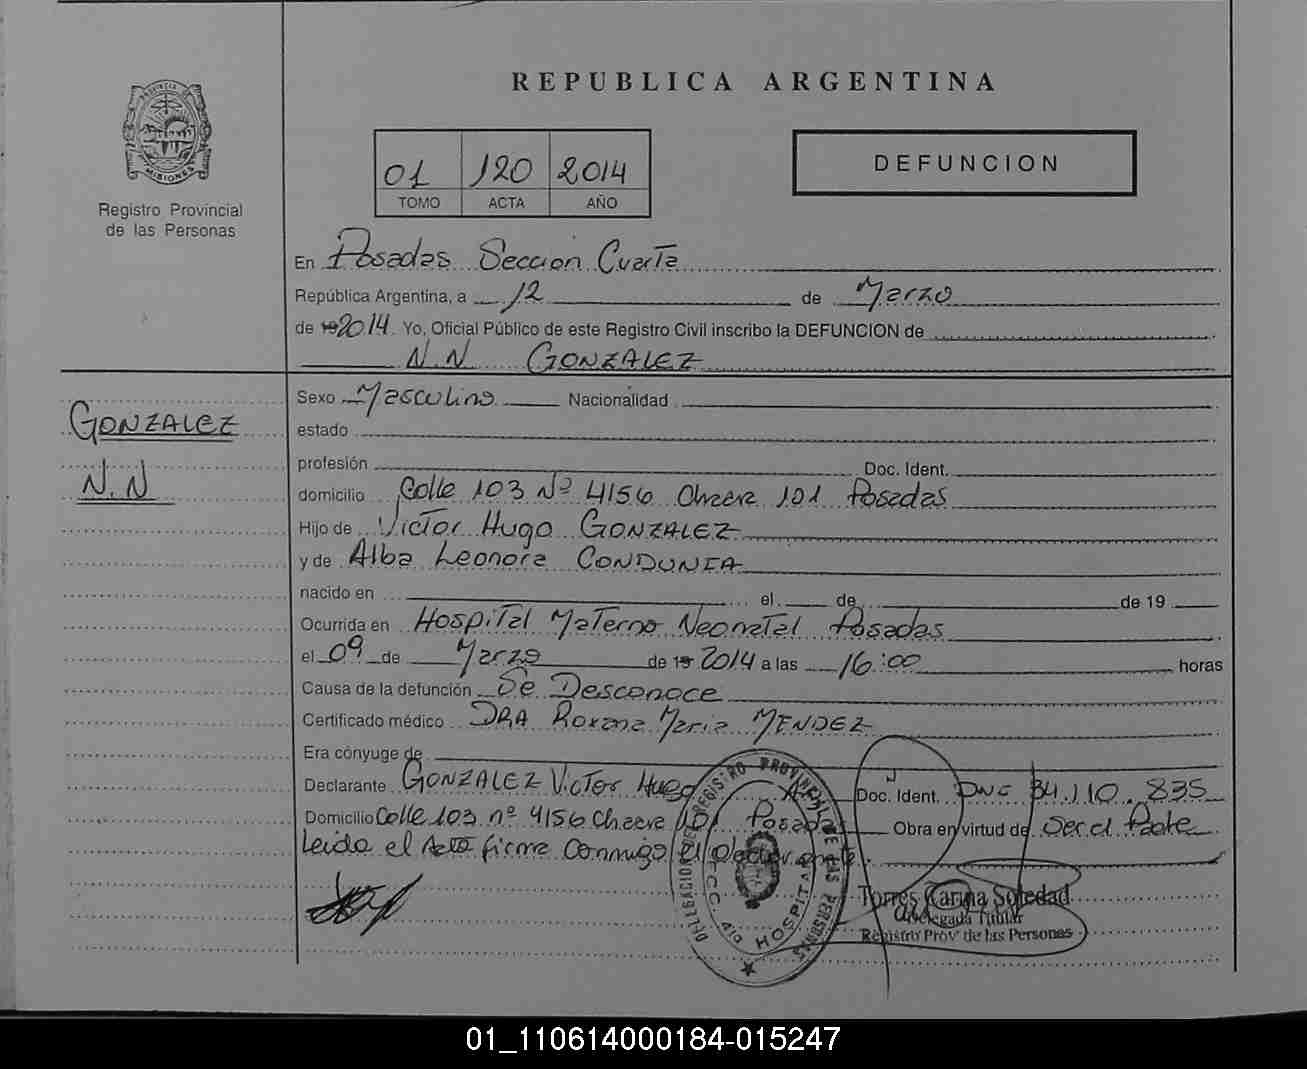 REPUBLICA ARGENTINA
PROVINCIA
MISIONES
Registro Provincial
de las Personas
01 120 2014
TOMO ACTA AÑO
DEFUNCION
En Posadas Sección Cuarta
República Argentina, a 12 de Marzo
de 19 2014. Yo, Oficial Público de este Registro Civil inscribo la DEFUNCION de
N.N GONZALEZ
GONZALEZ
N.N
Sexo Masculino Nacionalidad
estado
profesión Doc. Ident.
domicilio Calle 103 Nº 4156 Chacra 101 Posadas
Hijo de Victor Hugo GONZALEZ
y de Alba Leonora CONDUNIA
nacido en el de de 19
Ocurrida en Hospital Materno Neonatal Posadas
el 09 de Marzo de 19 2014 a las 16:00 horas
Causa de la defunción Se Desconoce
Certificado médico DRA Roxana Maria MENDEZ
Era cónyuge de
Declarante GONZALEZ Victor Hugo Doc. Ident. DNI 34.110.835
Domicilio Calle 103 nº 4156 Chacra 101 Posadas Obra en virtud de Ser el Padre
Leida el Acta firma conmigo el declarante.
DELEGACION REGISTRO PROVINCIAL DE LAS PERSONAS
SECC. 4ta HOSPITAL
Torres Carina Soledad
Delegada Titular
Registro Prov de las Personas
01_110614000184-015247